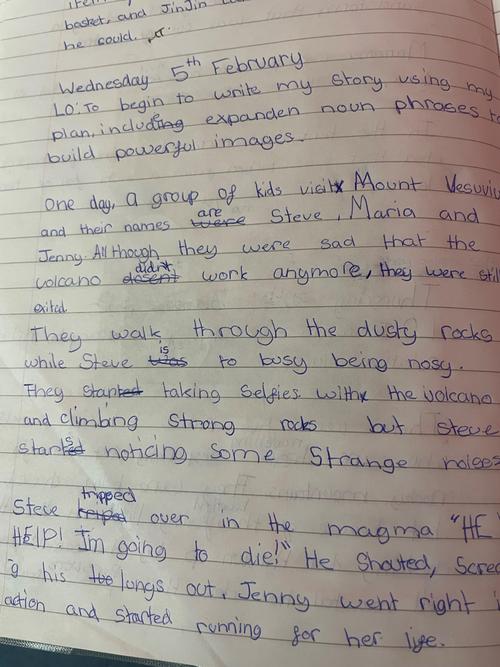 basket, and JinJin
he could.
Wednesday 5th February
LO: To begin to write my story using my
plan, including expanden noun phrases to
build powerful images.
One day, a group of kids visit Mount Vesuviu
and their names are Steve, Maria and
Jenny. All though, they were sad that the
volcano didn't work anymore, they were still
exited.
They walk through the dusty rocks
while Steve is to busy being nosy.
They start taking selfies with the volcano
and climbing strong rocks but steve
starts noticing some strange noises
Steve tripped over in the magma "HE
HELP! I'm going to die!" He shouted, Screa
g his lungs out, Jenny went right i
action and started running for her life.